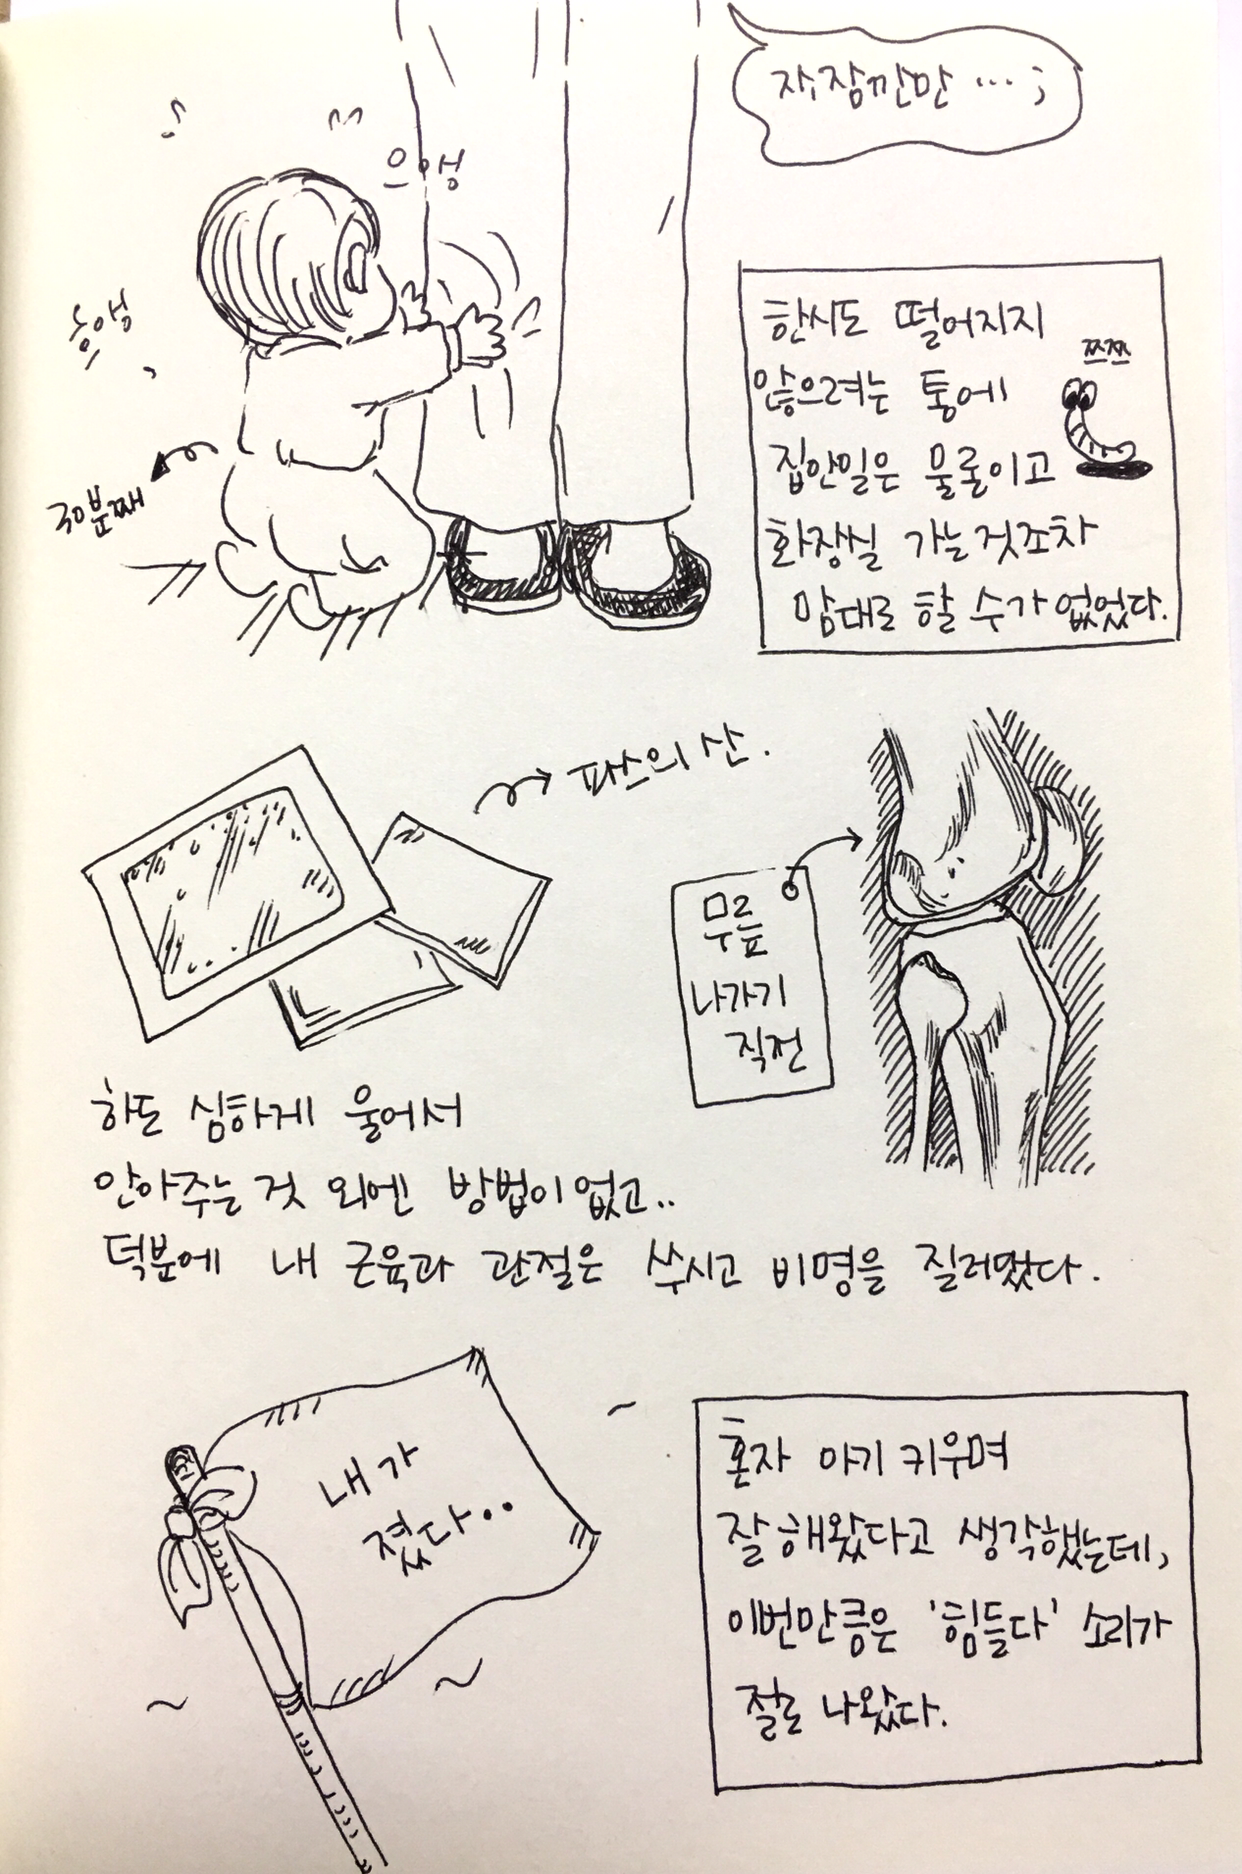 자, 잠깐만 … ;
으앵
응앵
30분째
한시도 떨어지지
않으려는 통에
쯔쯔
집안일은 물론이고
화장실 가는 것조차
맘대로 할 수가 없었다.
파스의 산.
무릎
나가기
직전
하도 심하게 울어서
안아주는 것 외엔 방법이 없고..
덕분에 내 근육과 관절은 쑤시고 비명을 질러댔다.
내가
졌다..
혼자 아기 키우며
잘 해왔다고 생각했는데,
이번만큼은 '힘들다' 소리가
절로 나왔다.